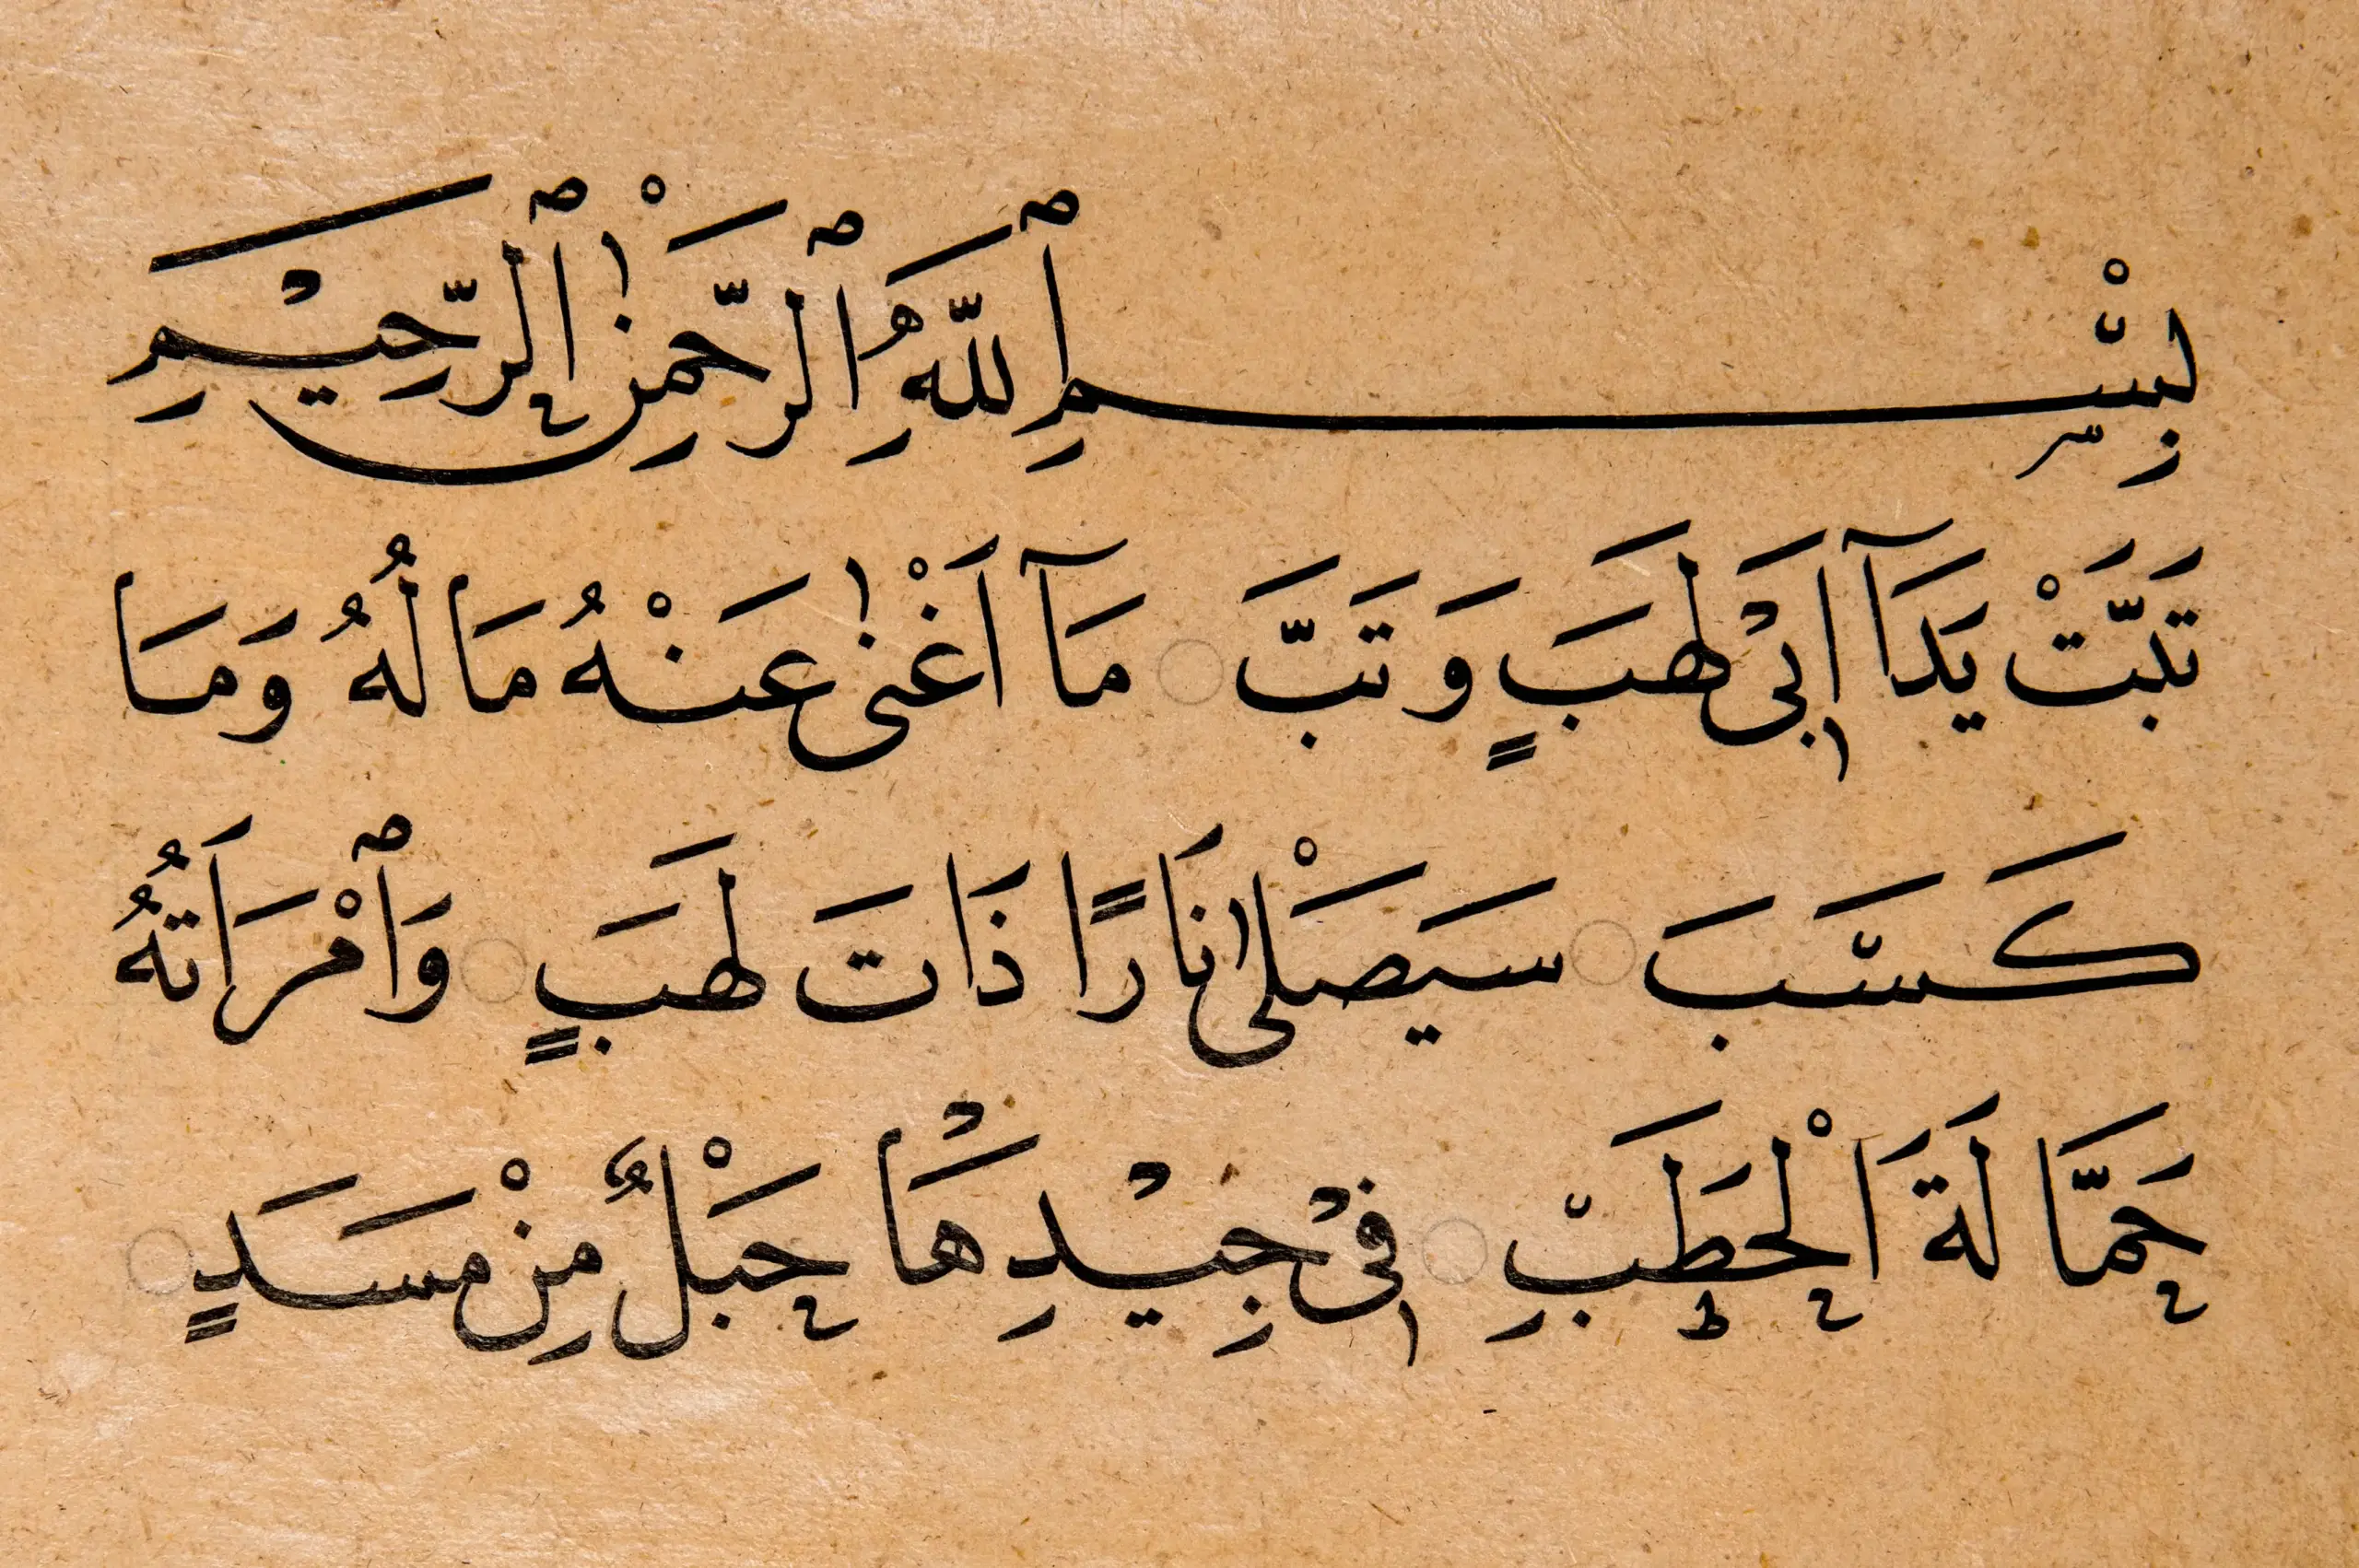 بِسْمِ ٱللَّهِ ٱلرَّحْمٰنِ ٱلرَّحِيْمِ
تَبَّتْ يَدَآ اَبِىْ لَهَبٍ وَ تَبَّ مَآ اَغْنٰى عَنْهُ مَا لُهُ وَمَا
كَسَبَ سَيَصْلٰى نَارًا ذَاتَ لَهَبٍ وَٱمْرَاَتُهُ
حَمَّا لَةَ اَلْحَطَبِ فِىْ جِيْدِهَا حَبْلٌ مِنْ مَسَدٍ